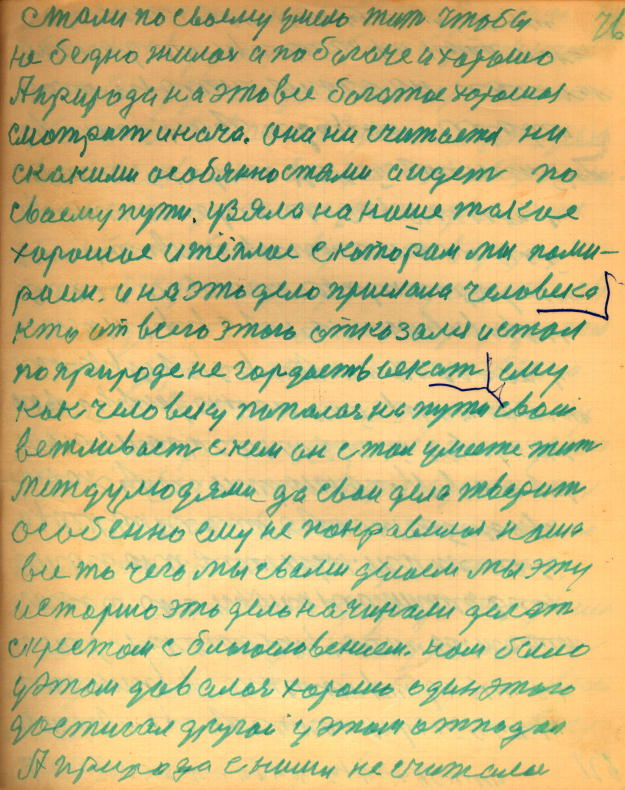 76
стали по своему умело жит чтобы
не бедно жилося а по богаче и хорошо
А природа на это все богатое хорошая
смотрит иначе. она ни считается ни
скакими особянностями а идет по
своему пути. и взяла на наше такое
хорошое и тёплое с котором мы поми-
раем. и на это дело прислала человека
кто от всего этого отказался и стал
по природе не гордость искат ему
как человеку попалася на пути свои
вежливаст с кем он стал умеете жит
между людями да свои дела тварит
особенно ему не понравилося наша
все то чего мы свами делаем мы эту
историю это дело начинали делат
скрестом с благословением. нам было
у этом давалося хорошо один этого
достигал другои у этом отпадал
А природа с ними не считалас